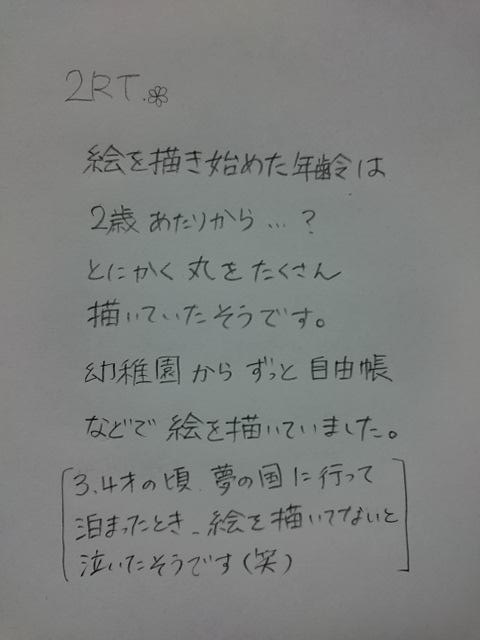 2RT.
絵を描き始めた年齢は
2歳あたりから…?
とにかく丸をたくさん
描いていたそうです。
幼稚園からずっと自由帳
などで絵を描いていました。
[3.4才の頃、夢の国に行って
泊まったとき、絵を描いてないと
泣いたそうです(笑)]